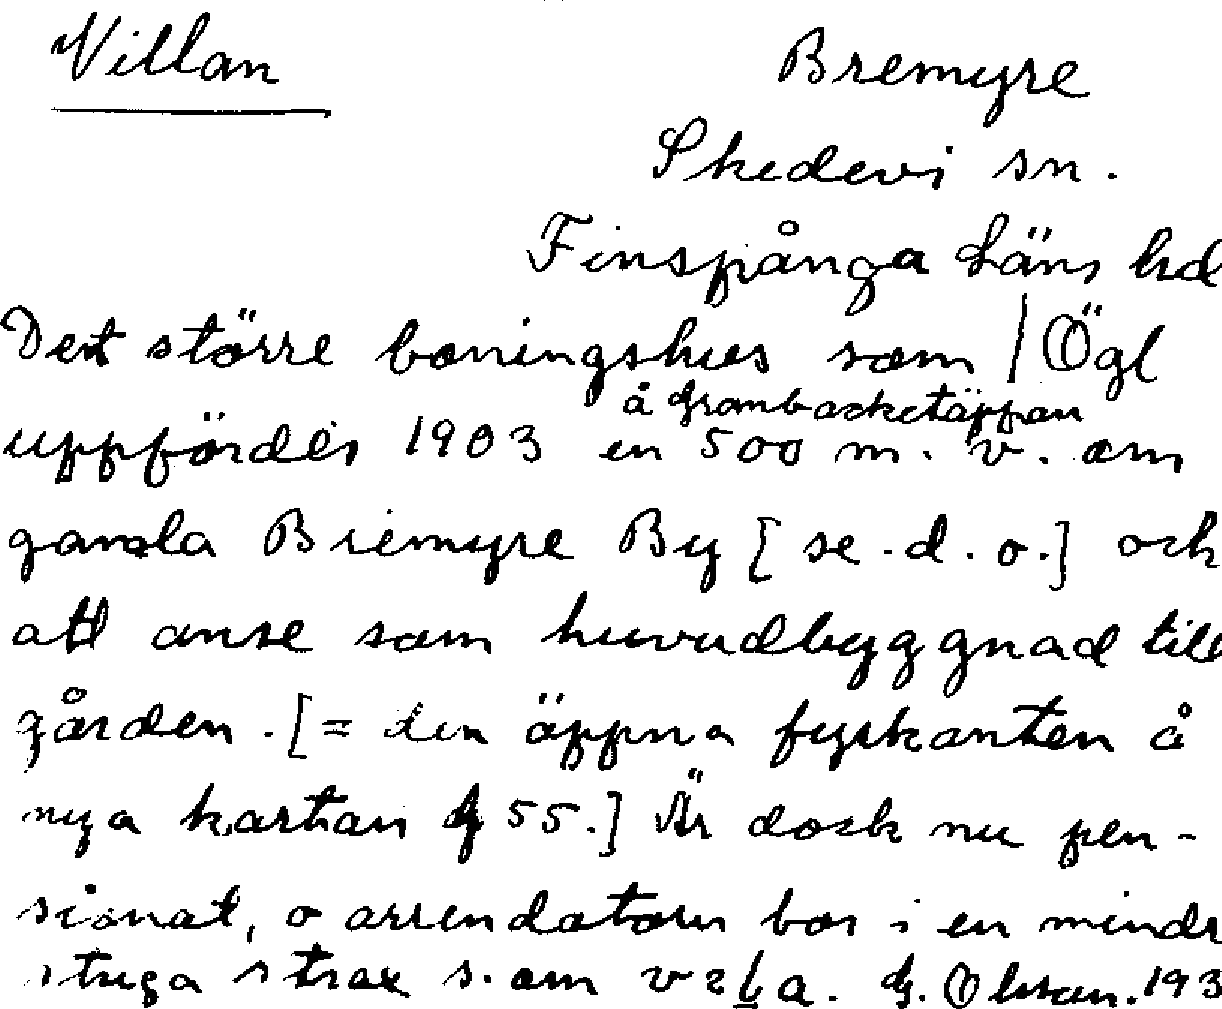 Villan
Bremyre
Skedevi sn.
Finspånga Läns hd
Det större boningshus som / Ögl
å Granbacketäppan
uppfördes 1903 en 500 m. v. om
gamla Bremyre By [se. d. o.] och
att anse som huvudbyggnad till
gården. [= den öppna fyrkanten å
nya kartan 55.] Är dock nu pen-
sionat, o arrendatorn bor i en mindr
stuga strax s. om v2ba. G. Olson. 193